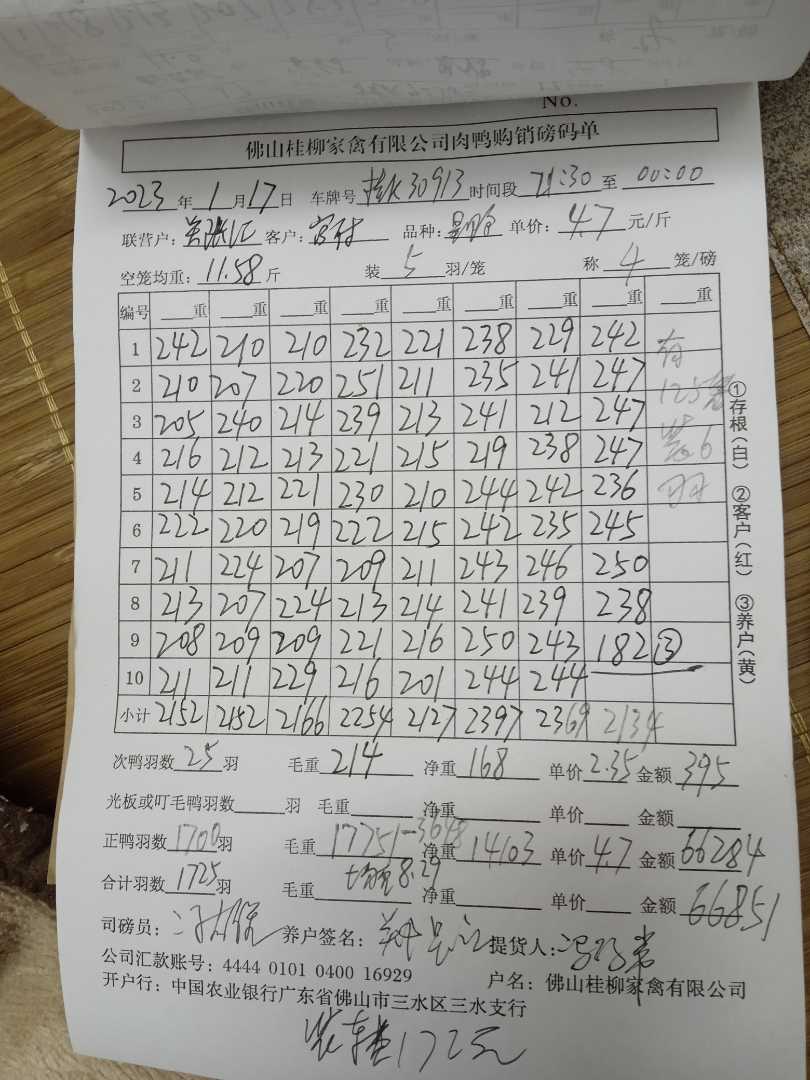 No.
佛山桂柳家禽有限公司肉鸭购销磅码单
2023年1月17日 车牌号 30913 时间段 21:30 至 00:00
联营户： 客户： 品种： 单价：4.7 元/斤
空笼均重：11.58斤 装 5 羽/笼 称 4 笼/磅
编号 重 重 重 重 重 重 重 重 重
1 242 210 210 232 221 238 229 242
2 210 207 220 251 211 235 241 247
3 205 240 214 239 213 241 212 247
4 216 212 213 221 215 219 238 247
5 214 212 221 230 210 244 242 236
6 222 220 219 222 215 242 235 245
7 211 224 207 209 211 243 246 250
8 213 207 224 213 214 241 239 238
9 208 209 209 221 216 250 243 182③
10 211 211 229 216 201 244 244
小计 2152 2152 2166 2254 2127 2397 2369 2134
有
125笼
装6
羽
①存根(白) ②客户(红) ③养户(黄)
次鸭羽数 25 羽 毛重 214 净重 168 单价 2.35 金额 395
光板或叮毛鸭羽数 羽 毛重 净重 单价 金额
正鸭羽数 1700 羽 毛重 17751-3648 净重 14103 单价 4.7 金额 66284
合计羽数 1725 羽 毛重 均重8.29 净重 单价 金额 66851
司磅员： 养户签名： 提货人：
公司汇款账号：4444 0101 0400 16929 户名：佛山桂柳家禽有限公司
开户行：中国农业银行广东省佛山市三水区三水支行
装车费172元